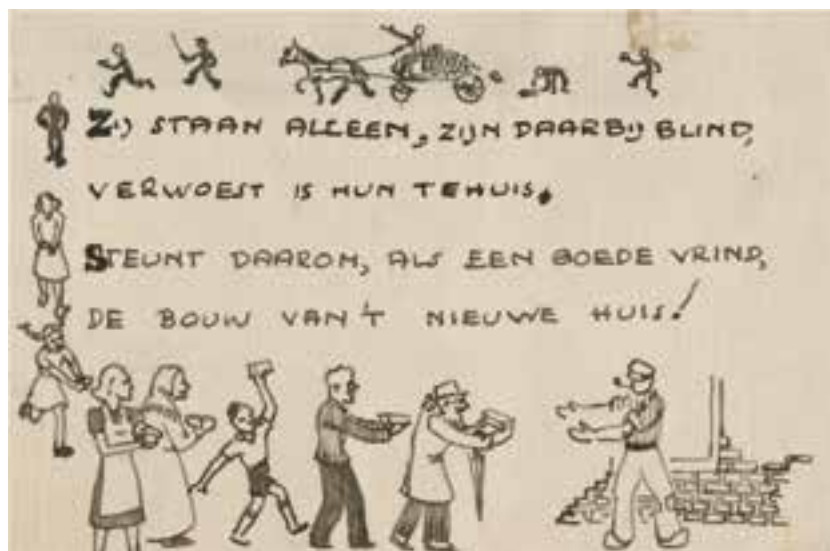 Zij STAAN ALLEEN, ZIJN DAARBij BLIND,
VERWOEST IS HUN TEHUIS.
STEUNT DAAROM, ALS EEN GOEDE VRIND,
DE BOUW VAN 'T NIEUWE HUIS!